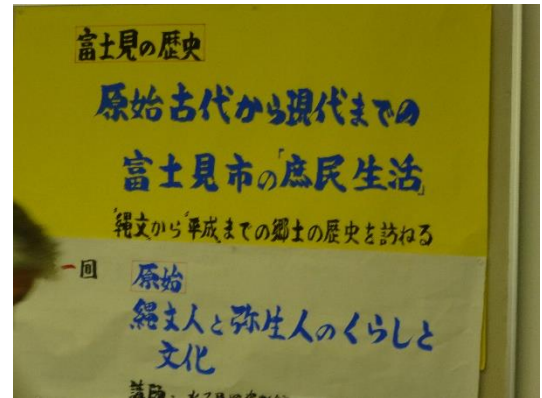 富士見の歴史
原始古代から現代までの
富士見市の「庶民生活」
"縄文から"平成"までの郷土の歴史を訪ねる
一回 原始
縄文人と弥生人のくらしと
文化